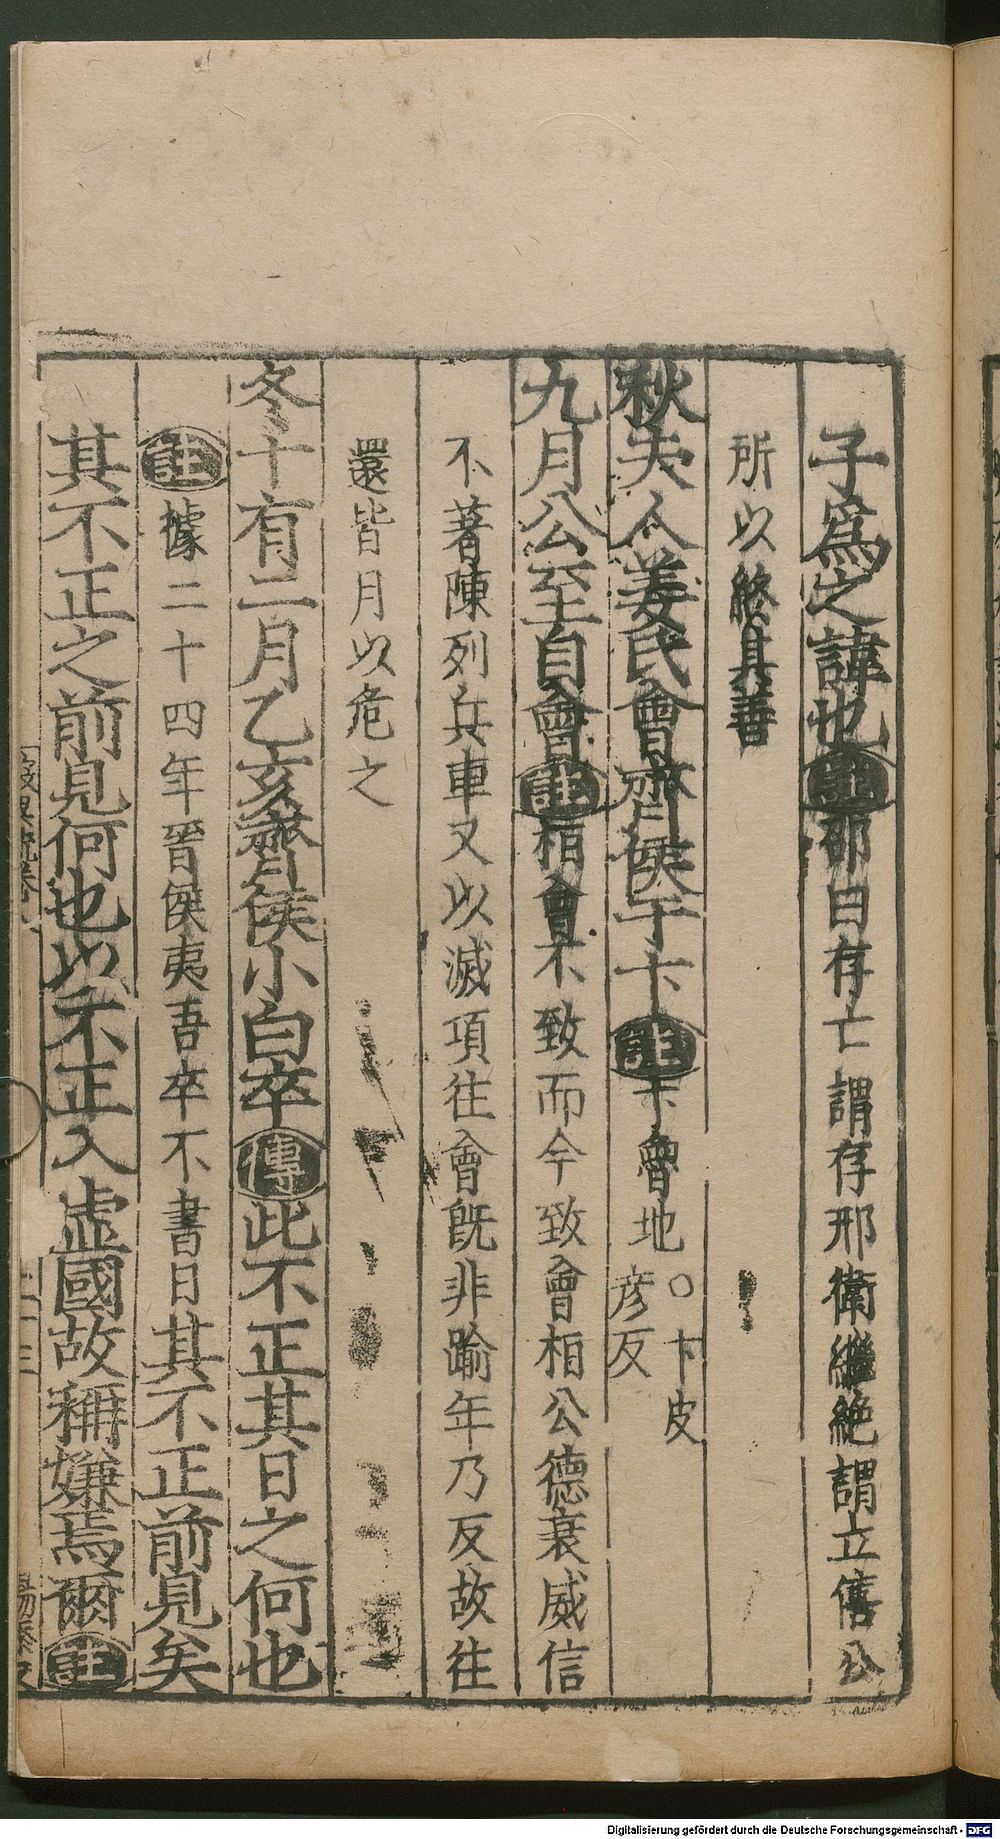 子爲之諱也註邵曰存亡謂存邢衛繼絶謂立僖公
所以終其善
秋夫人姜氏會齊侯于卞註卞魯地〇卞皮彦反
九月公至自會註桓會不致而今致會桓公德衰威信
不著陳列兵車又以滅項往會旣非踰年乃反故往
還皆月以危之
冬十有二月乙亥齊侯小白卒傳此不正其日之何也
註據二十四年晉侯夷吾卒不書日其不正前見矣
其不正之前見何也以不正入虛國故稱嫌焉爾註
Digitalisierung gefördert durch die Deutsche Forschungsgemeinschaft - DFG